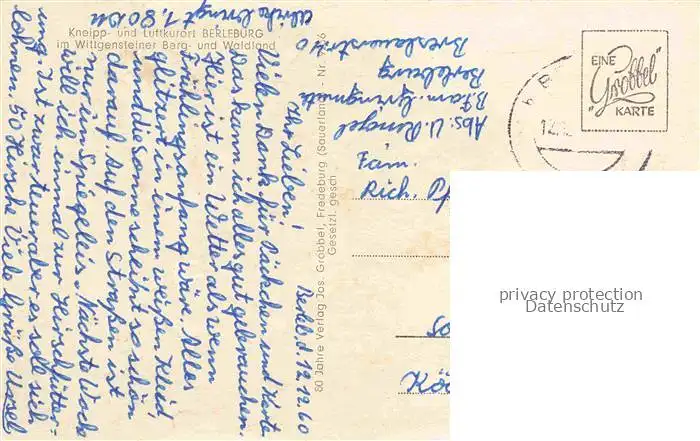 Kneipp- und Luftkurort BERLEBURG
im Wittgensteiner Berg- und Waldland
Berlebg., d. 12.12.60
Ihr Lieben!
Vielen Dank für Päckchen und Karte
Das kann ich alles gut gebrauchen.
Hier ist ein Wetter als wenn
Frühlingsanfang wäre. Alles
glitzert in einem weißen Kleid,
und die Sonne scheint so schön
darauf. Auf den Straßen ist
nur ein Spiegeleis. Nächste Woche
will ich mal zur Hirschfütter=
ung. Ist zwar teuer aber es soll sich
lohnen. 50 Hirsche. Viele Grüße
1,80 DM
80 Jahre Verlag Jos. Grobbel, Fredeburg (Sauerland)
Gesetzl. gesch.
Abs: U. Rengel
Berleburg
Breslauerstr. 40
EINE
"Grobbel"
KARTE
Fam.
Rich.
privacy protection
Datenschutz